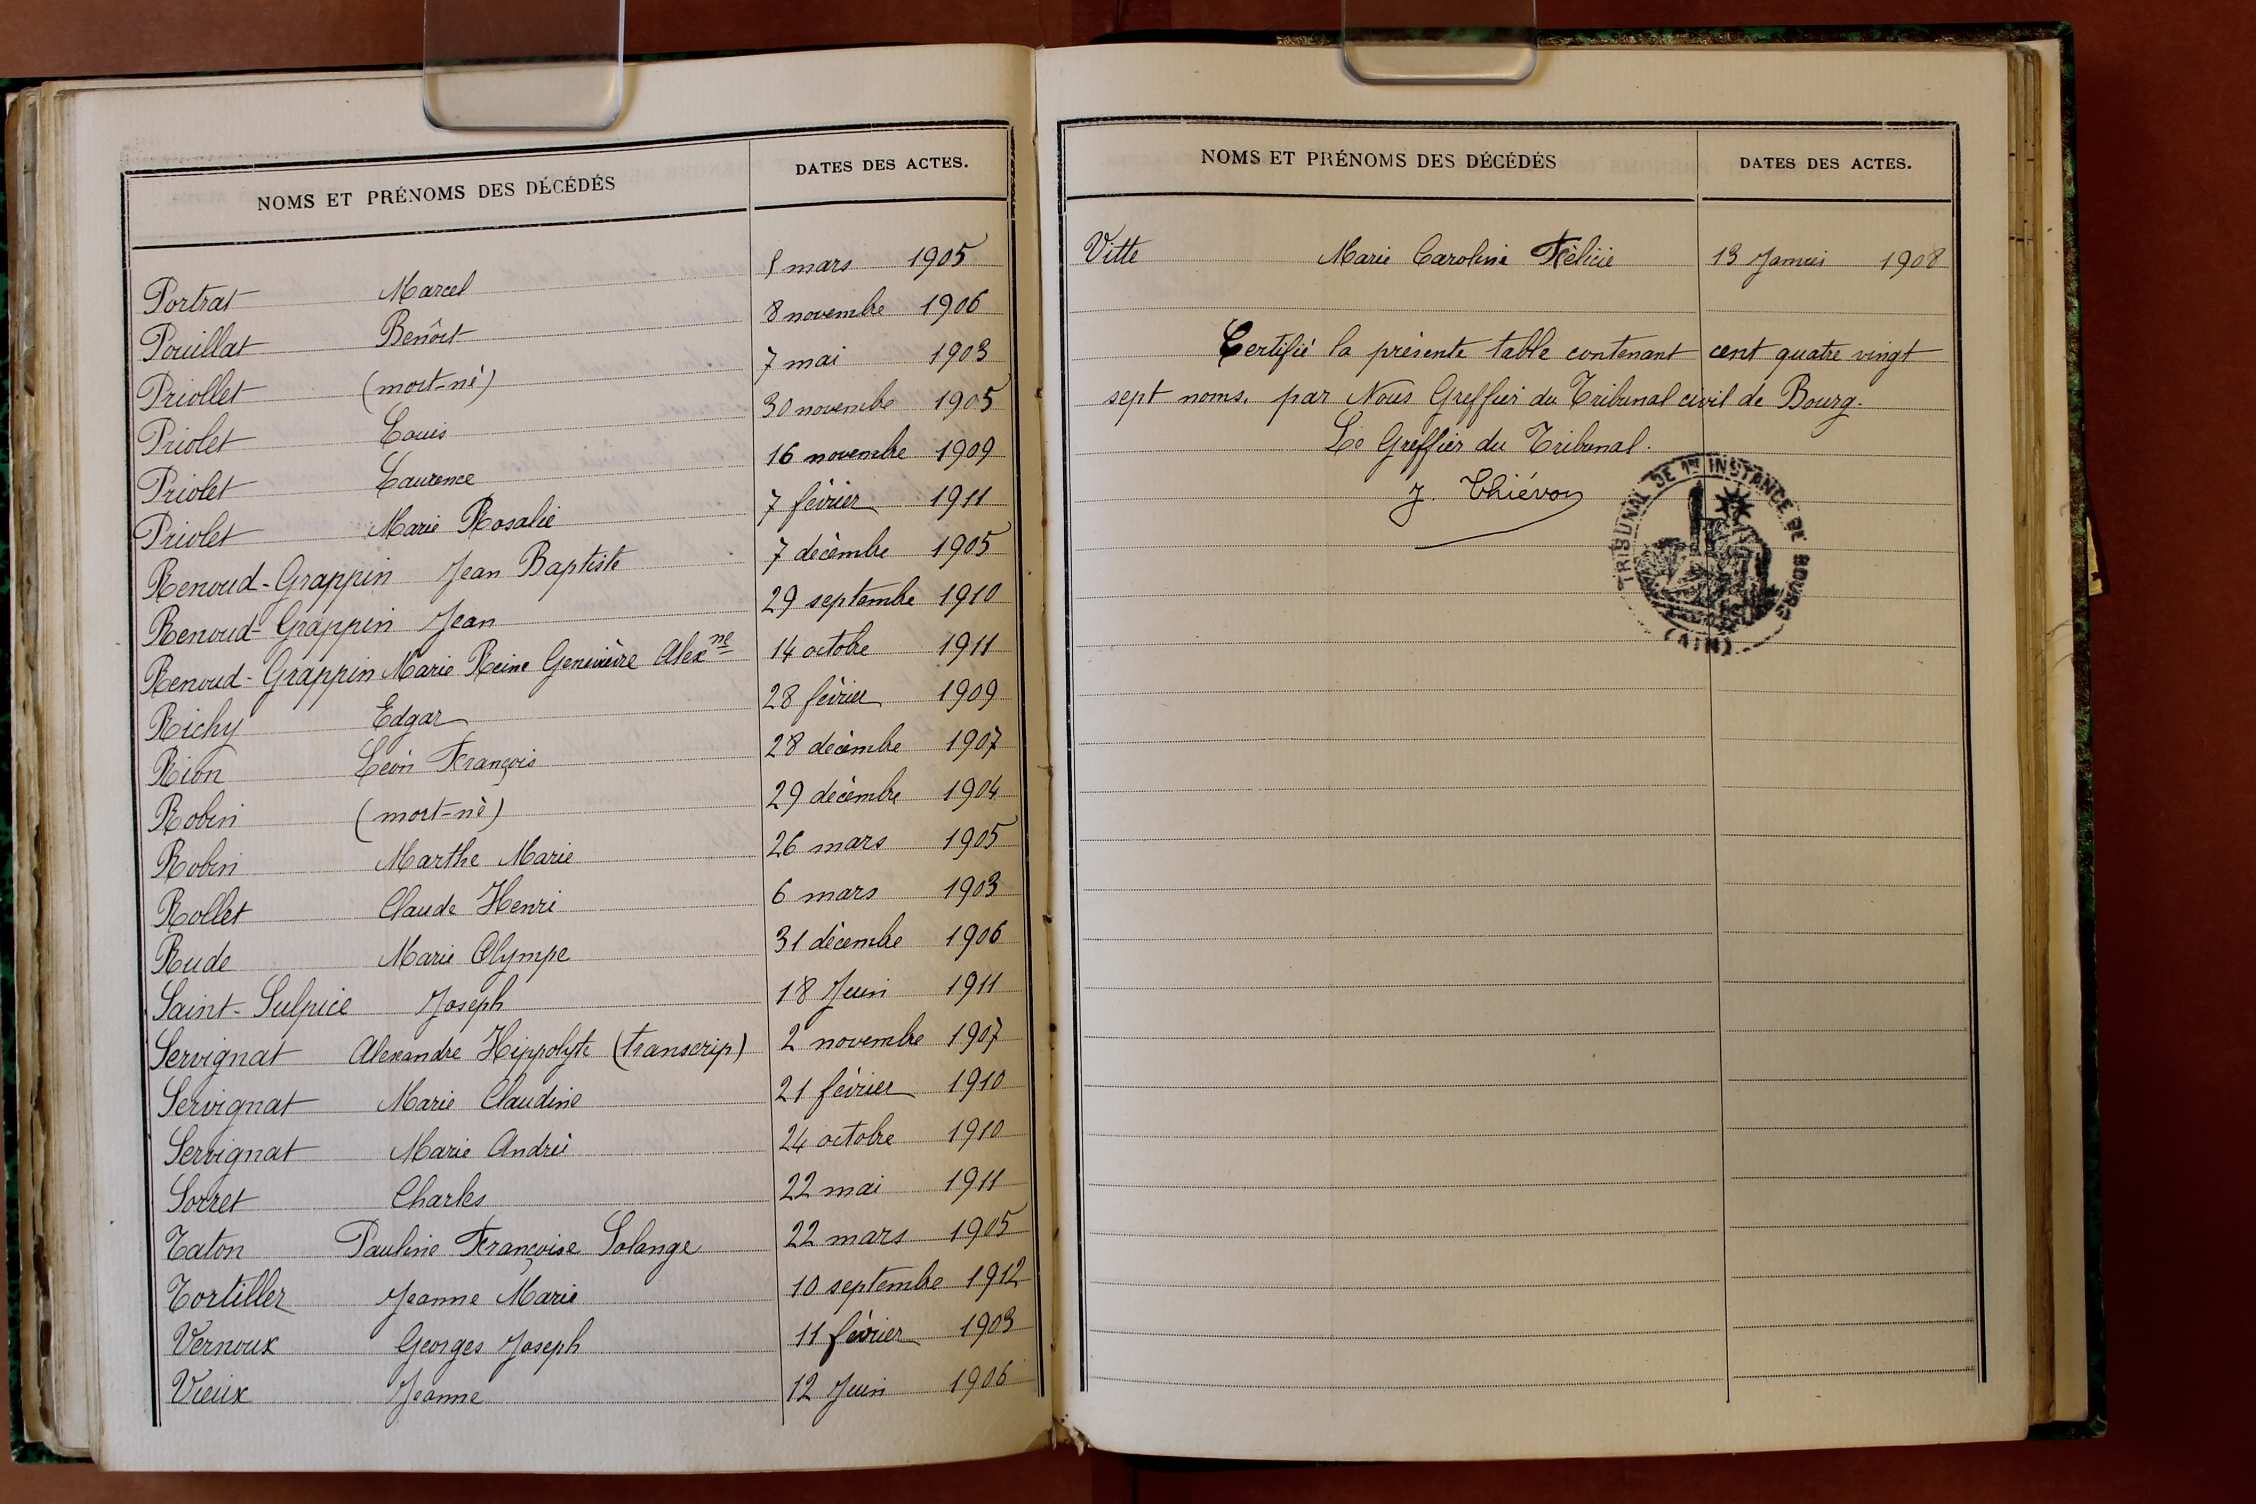 NOMS ET PRÉNOMS DES DÉCÉDÉS DATES DES ACTES.
Portrat Marcel mars 1905
Pouillat Benôit 8 novembre 1906
Priollet (mort-né) 7 mai 1903
Priolet Louis 30 novembre 1905
Priolet Laurence 16 novembre 1909
Priolet Marie Rosalie 7 février 1911
Renoud-Grappin Jean Baptiste 7 décembre 1905
Renoud-Grappin Jean 29 septembre 1910
Renoud-Grappin Marie Reine Geneviève Alexne 14 octobre 1911
Richy Edgar 28 février 1909
Rion Léon François 28 décembre 1907
Robin (mort-né) 29 décembre 1904
Robin Marthe Marie 26 mars 1905
Rollet Claude Henri 6 mars 1903
Rude Marie Olympe 31 décembre 1906
Saint-Sulpice Joseph 18 Juin 1911
Servignat Alexandre Hippolyte (transcrip) 2 novembre 1907
Servignat Marie Claudine 21 février 1910
Servignat Marie André 24 octobre 1910
Sorret Charles 22 mai 1911
Taton Pauline Françoise Solange 22 mars 1905
Tortiller Jeanne Marie 10 septembre 1912
Vernoux Georges Joseph 11 février 1903
Vieux Jeanne 12 Juin 1906
NOMS ET PRÉNOMS DES DÉCÉDÉS DATES DES ACTES.
Vitte Marie Caroline Félicie 13 Janvier 1908
Certifié la présente table contenant cent quatre vingt
sept noms, par Nous Greffier du Tribunal civil de Bourg.
Le Greffier du Tribunal.
J. Thiévon
TRIBUNAL DE 1re INSTANCE DE BOURG
(AIN)